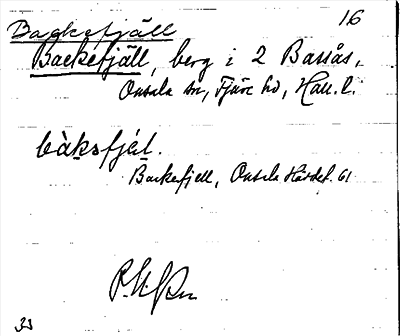 16
Backefjäll
Backefjäll, berg i 2 Bassås,
Onsala sn, Fjäre hd, Hall. l.
bàksfjél.
Backefjell, Onsala Härdet. 61
33